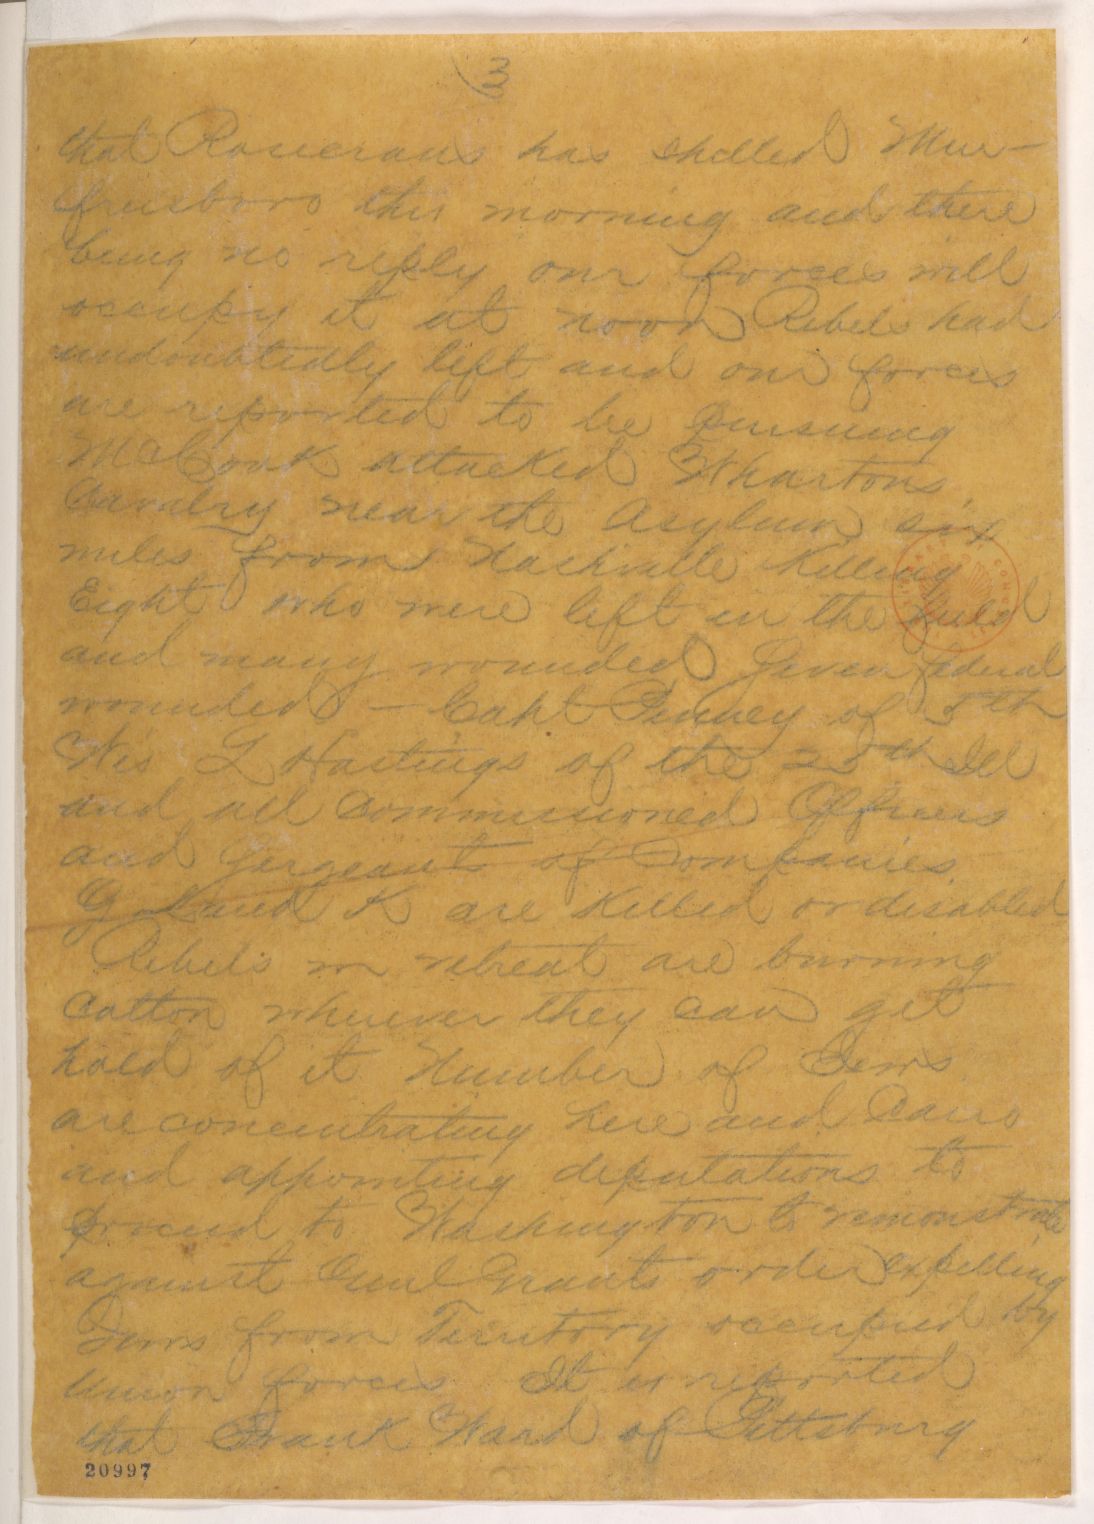 3
that Rosecrans has shelled Mur-
freesboro this morning and there
being no reply our forces will
occupy it at noon Rebels had
undoubtedly left and our forces
are reported to be pursuing
McCook attacked Whartons
Cavalry near the Asylum six
miles from Nashville killing
Eight who were left in the field
and many wounded Seven federal
wounded - Capt Pinney of 5th
Wis L Hastings of the 25th Ill
and all commissioned Officers
and Sergeants of Companies
G and K are killed or disabled
Rebels in retreat are burning
Cotton wherever they can get
hold of it Number of Jews
are concentrating here and Cairo
and appointing deputations to
proceed to Washington to remonstrate
against Genl Grants order expelling
Jews from Territory occupied by
Union forces It is reported
that Frank Ward of Pittsburg
20997